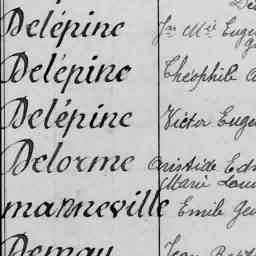 Delépine Jn Mie Eugè
Delépine Théophile
Delépine Victor Eugè
Delorme Aristide Ed
Marie Lou
manneville Emile Geo
Demay Jean Bapt